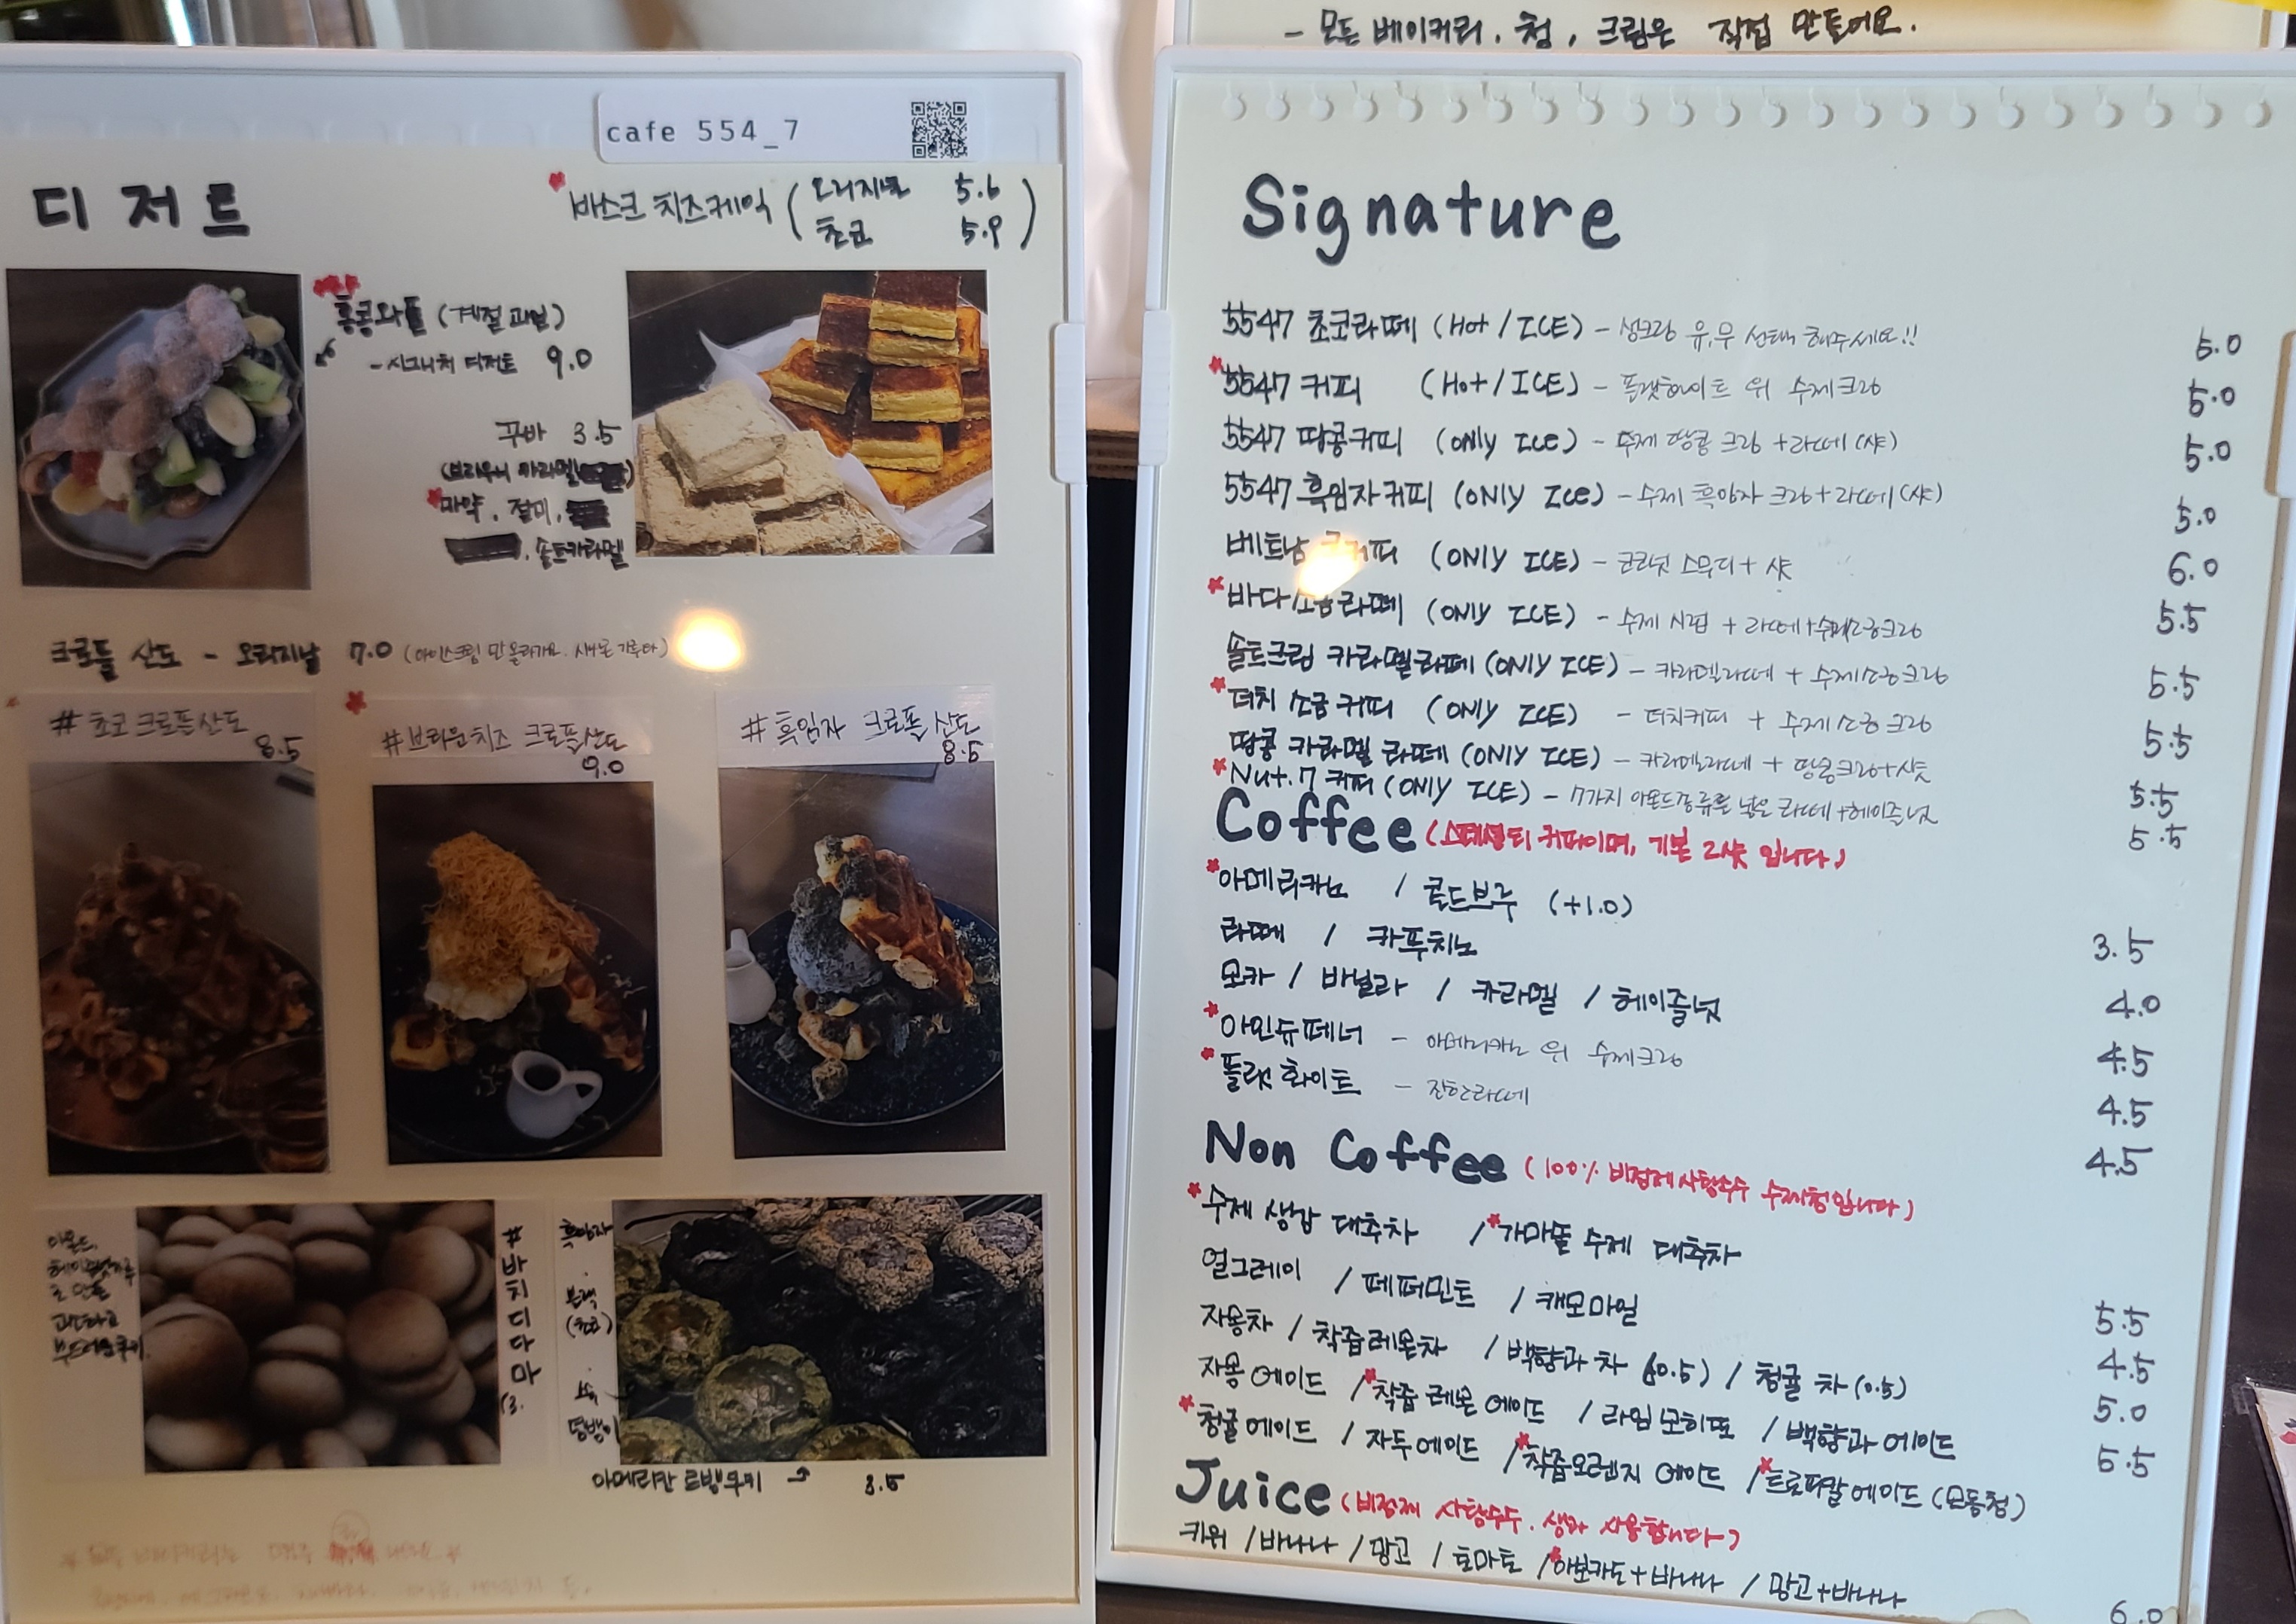 - 모든 베이커리, 청, 크림은 직접 만들어요.
cafe 554_7
디저트
바스크 치즈케익 ( 오리지널 5.6
초코 5.9 )
홍콩와플 (계절과일)
- 시그니처 디저트 9.0
꾸바 3.5
(브라우니 카라멜
마약, 절미,
, 솔트카라멜
크로플 산도 - 오리지날 7.0 (아이스크림만 올라가요. 시나몬가루다)
# 초코크로플산도
8.5
#브라운치즈 크로플산도
9.0
#흑임자 크로플산도
8.5
아몬드,
헤이즐넛가루
로 만든
부드러운쿠키.
#바치디다마
(3.
흑임자
.
블랙
(초코)
.
쑥
아메리칸 르뱅쿠키 → 3.5
Signature
5547 초코라떼 (Hot / ICE) - 생크림 유,무 선택해주세요!! 5.0
5547 커피 (Hot / ICE) - 플랫화이트 위 수제크림 5.0
5547 땅콩커피 (only Ice) - 수제 땅콩 크림 + 라떼(샷) 5.0
5547 흑임자커피 (ONLY Ice) - 수제 흑임자 크림 + 라떼(샷) 5.0
베트남 커피 (ONLY ICE) - 코코넛 스무디 + 샷 6.0
바다소금라떼 (ONLY ICE) - 수제 시럽 + 라떼+수제소금크림 5.5
솔트크림 카라멜라떼 (ONLY ICE) - 카라멜라떼 + 수제소금크림 5.5
더치 소금 커피 (ONLY ICE) - 더치커피 + 수제소금크림 5.5
땅콩 카라멜 라떼 (ONLY ICE) - 카라멜라떼 + 땅콩크림+샷 5.5
Nut.7 커피 (ONLY ICE) - 7가지 아몬드종류를 넣은 라떼+헤이즐넛 5.5
Coffee (스페셜티 커피이며, 기본 2샷 입니다)
아메리카노 / 콜드브루 (+1.0) 3.5
라떼 / 카푸치노 4.0
모카 / 바닐라 / 카라멜 / 헤이즐넛 4.5
아인슈페너 - 아메리카노 위 수제크림 4.5
플랫 화이트 - 진한라떼 4.5
Non Coffee (100% 비정제사탕수수 수제청입니다)
수제 생강 대추차 / 가마솥 수제 대추차 5.5
얼그레이 / 페퍼민트 / 캐모마일 4.5
자몽차 / 착즙레몬차 / 백향과 차 (0.5) / 청귤 차 (0.5) 5.0
자몽 에이드 / 착즙 레몬 에이드 / 라임 모히또 / 백향과 에이드 5.5
청귤 에이드 / 자두에이드 / 착즙오렌지 에이드 / 트로피칼에이드 (모둠청)
Juice (비정제 사탕수수, 생과 사용합니다)
키위 / 바나나 / 망고 / 토마토 / 아보카도+바나나 / 망고+바나나
6.0